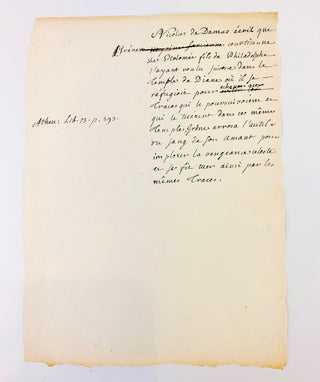 Nicolas de Damas écrit que
Irène courtisanne
de Ptolomée fils de Philadelphe
l'ayant voulu suivre dans le
temple de Diane où il se
refugioit pour echaper aux
Traces qui le poursuivoient et
qui le tuerent dans ce même
temple Irène arrosa l'autel
du sang de son amant pour
implorer la vengeance celeste
et se fit tuer ainsi par les
mêmes Traces.
Athen: Lib. 13. p. 593.